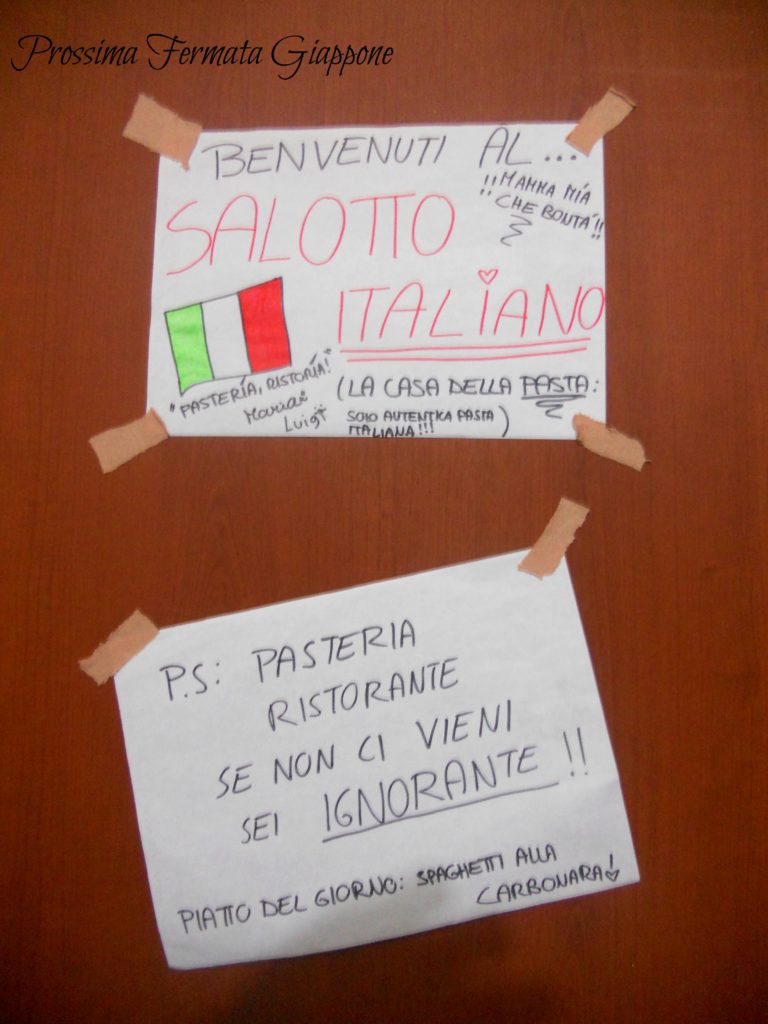 Prossima Fermata Giappone
BENVENUTI AL...
!! MAMMA MIA
CHE BONTA'!!
SALOTTO
ITALIANO
"PASTERÍA, RISTORÍA!"
Luigi
(LA CASA DELLA PASTA:
SOLO AUTENTICA PASTA
ITALIANA!!!)
P.S: PASTERIA
RISTORANTE
SE NON CI VIENI
SEI IGNORANTE!!
PIATTO DEL GIORNO: SPAGHETTI ALLA
CARBONARA!